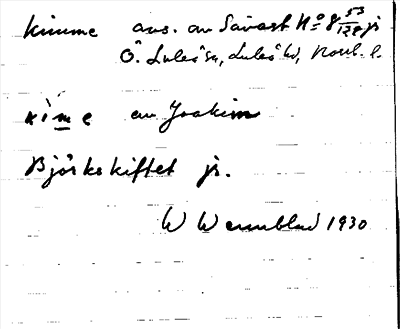 Kimme ans. av Sävast No 8 53/128 jr
Ö. Luleå sn, Luleå tg, Norrb. l.
kìme av Joakim
Björkskiftet jr.
W Wennblad 1930